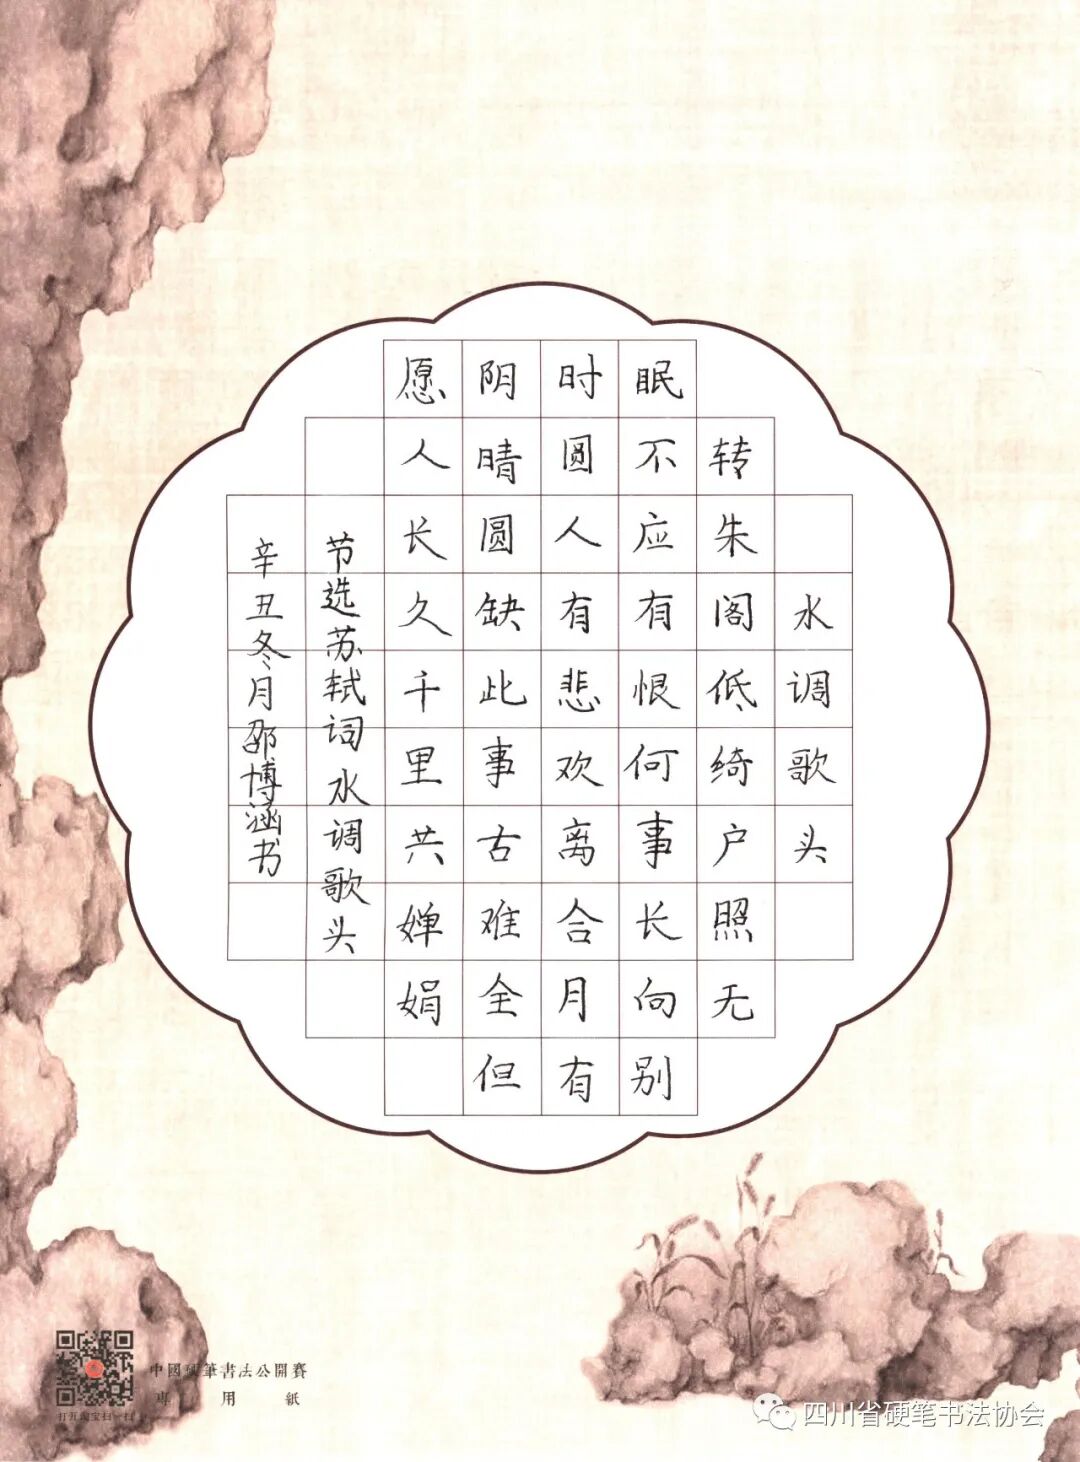 水调歌头
转朱阁低绮户照无
眠不应有恨何事长向别
时圆人有悲欢离合月有
阴晴圆缺此事古难全但
愿人长久千里共婵娟
节选苏轼词水调歌头
辛丑冬月邵博涵书
中國硬筆書法公開賽
專用紙
打开淘宝扫一扫
四川省硬笔书法协会